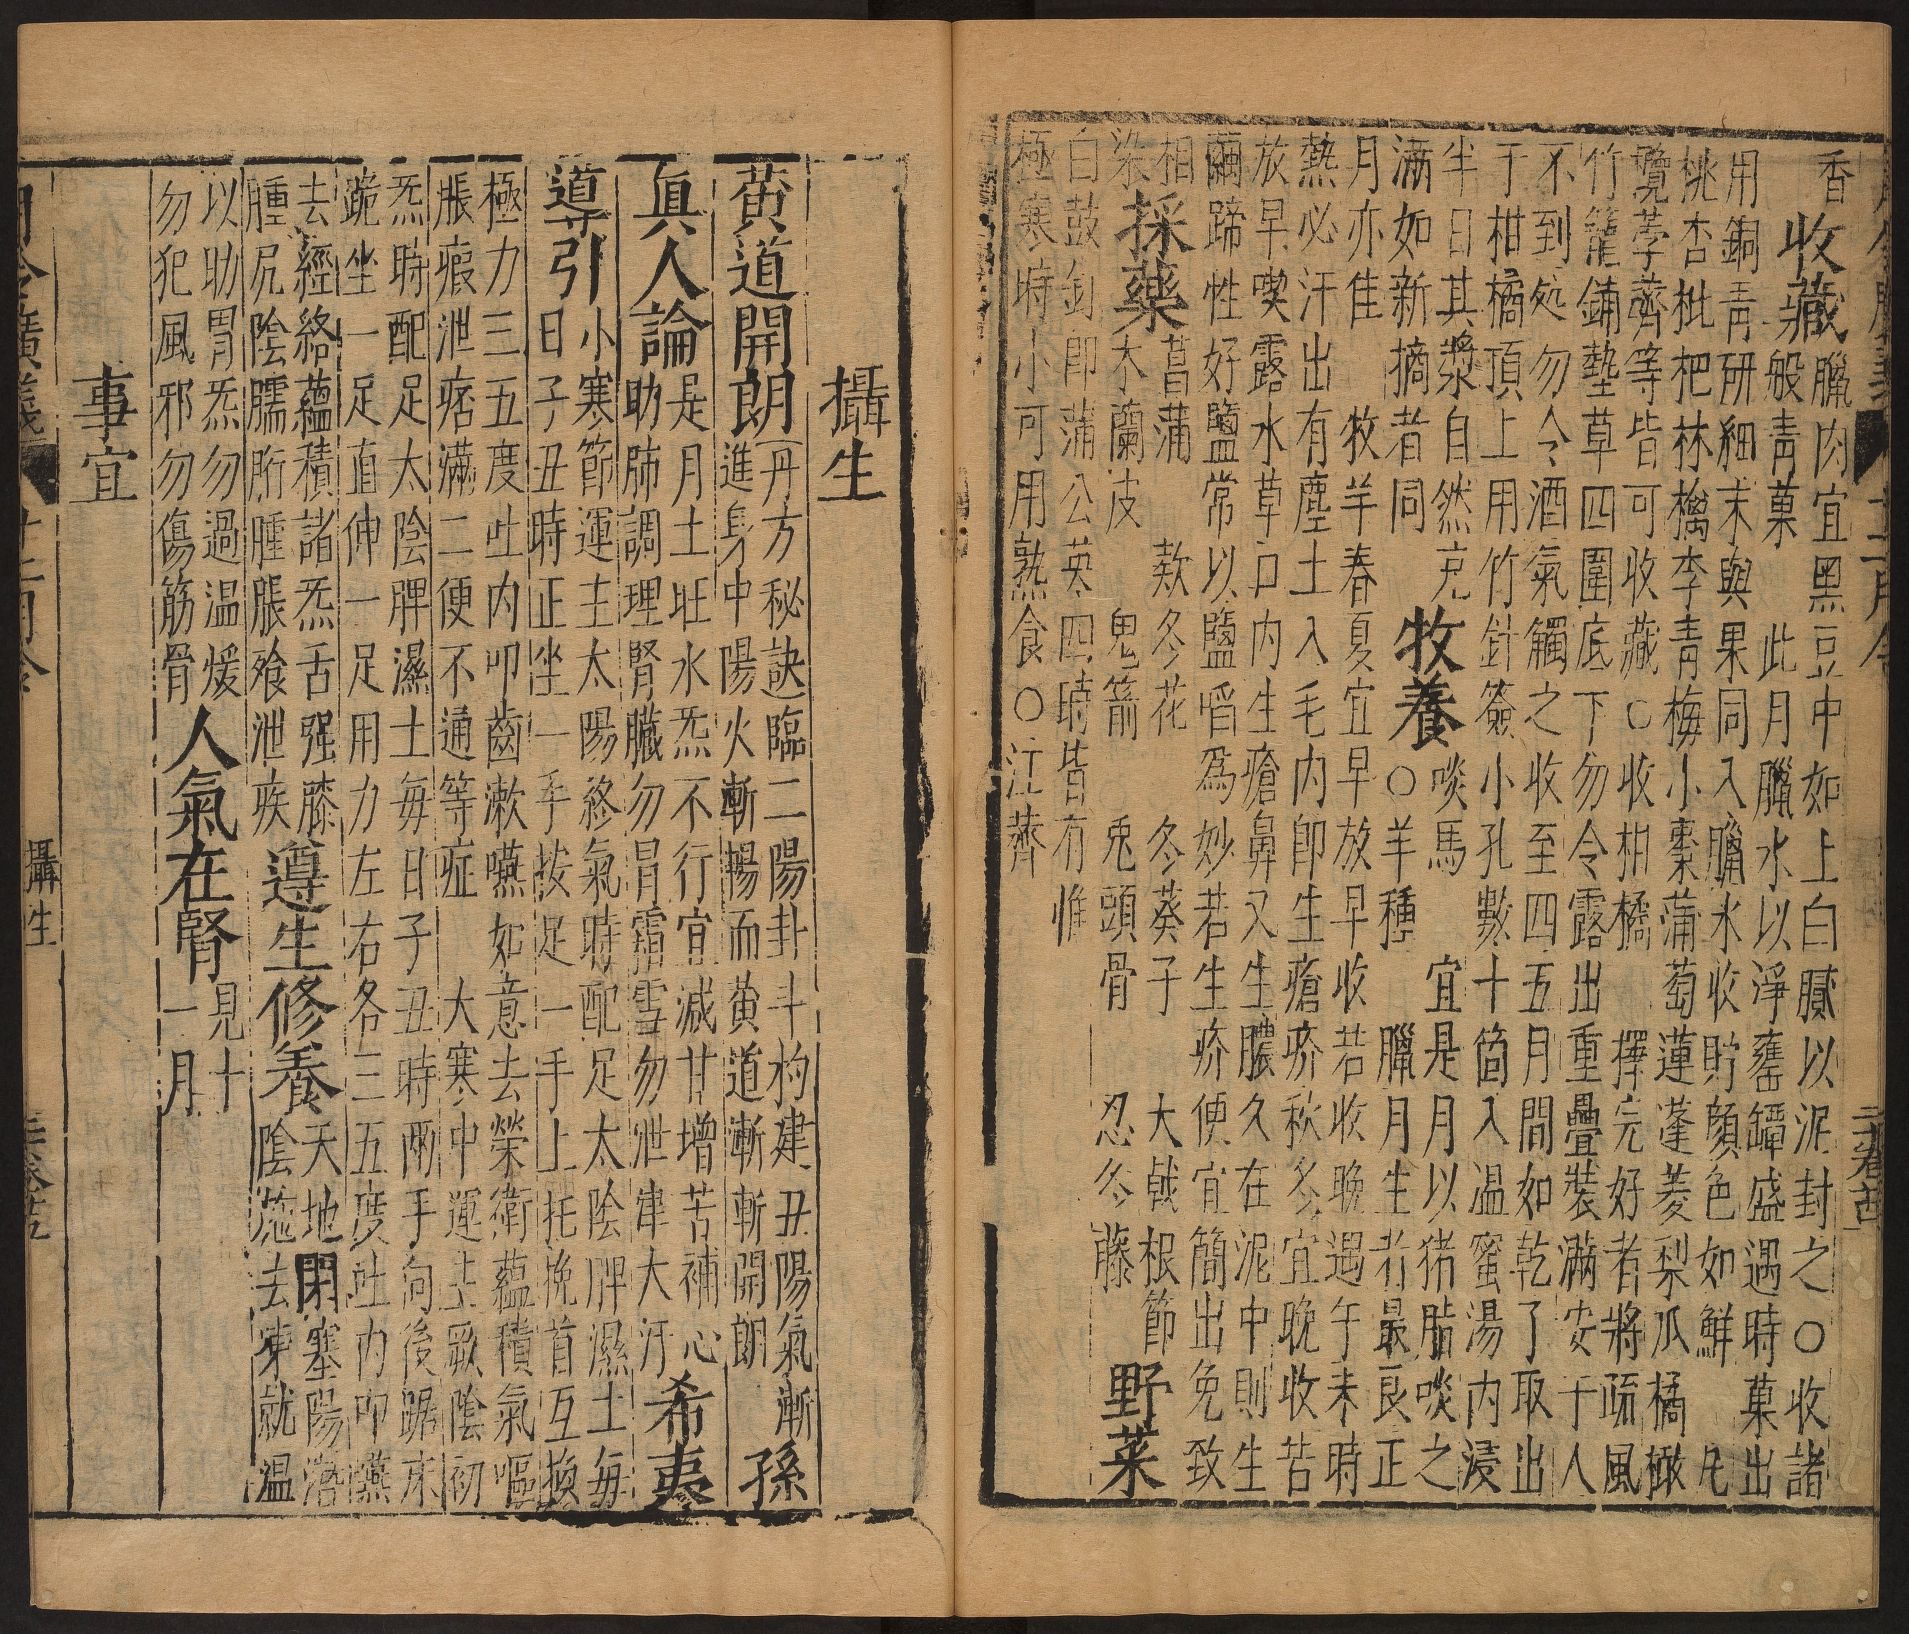 香
收藏
臘肉宜黑豆中如上白膩以泥封之○收諸
般青菓　此月臘水以淨罋罈盛遇時菓出
用銅青研細末與果同入臘水收貯顔色如鮮　凡
桃杏枇杷林檎李青梅小棗蒲萄蓮蓬菱梨瓜橘橄
欖荸薺等皆可收藏○收柑橘　擇完好者將疏風
竹籠鋪墊草四圍底下勿令露出重疊裝滿安于人
不到処勿令酒氣觸之收至四五月間如乾了取出
于柑橘頂上用竹針簽小孔數十箇入温蜜湯内浸
半日其漿自然充
滿如新摘者同
牧養
啖馬　宜是月以猪脂啖之
○羊種　臘月生者最良正
月亦佳　牧羊春夏宜早放早收若收晚遇午未時
熱必汗出有塵土入毛内即生瘡疥秋冬宜晚收苦
放早喫露水草口内生瘡鼻又生膿久在泥中則生
繭蹄性好鹽常以鹽㗖爲妙若生疥便宜簡出免致
相
染
採藥
菖蒲　欵冬花　冬葵子　大戟根節
木蘭皮　鬼箭　兎頭骨　忍冬藤
野菜
白鼓釘即蒲公英四時皆有惟
極寒時小可用熟食○江薺
攝生
黄道開朗
丹方秘訣臨二陽卦斗杓建丑陽氣漸
進身中陽火漸揚而黄道漸漸開朗
孫
真人論
是月土旺水炁不行宜減甘增苦補心
助肺調理腎臟勿冒霜雪勿泄津大汗
希夷
導引
小寒節運主太陽終氣時配足太陰脾濕土每
日子丑時正坐一手按足一手上托挽首互換
極力三五度吐内叩齒漱嚥如意去榮衛蘊積氣嘔
脹瘕泄痞滿二便不通等症　大寒中運主厥陰初
炁時配足太陰脾濕土每日子丑時兩手向後踞床
跪坐一足直伸一足用力左右各三五度吐内叩嚥
去經絡蘊積諸炁舌强膝
腫尻陰臑胻腫脹飧泄疾
遵生修養
天地閉塞陽潛
陰施去凍就温
以助胃炁勿過温煖
勿犯風邪勿傷筋骨
人氣在腎
見十
一月
事宜
月令廣義　十二月令　攝生